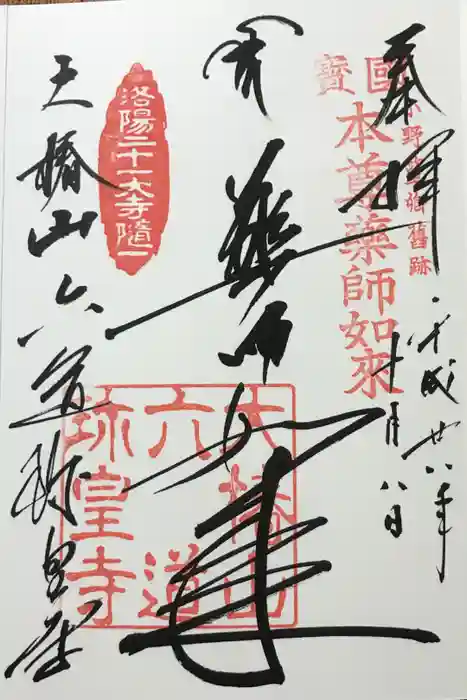 奉拝
平成廿八年
十月八日
小野篁卿舊跡
國寶
本尊藥師如來
薬師如来
洛陽二十一大寺隨一
大椿山六道珍皇寺
大椿山
六道
珎皇寺